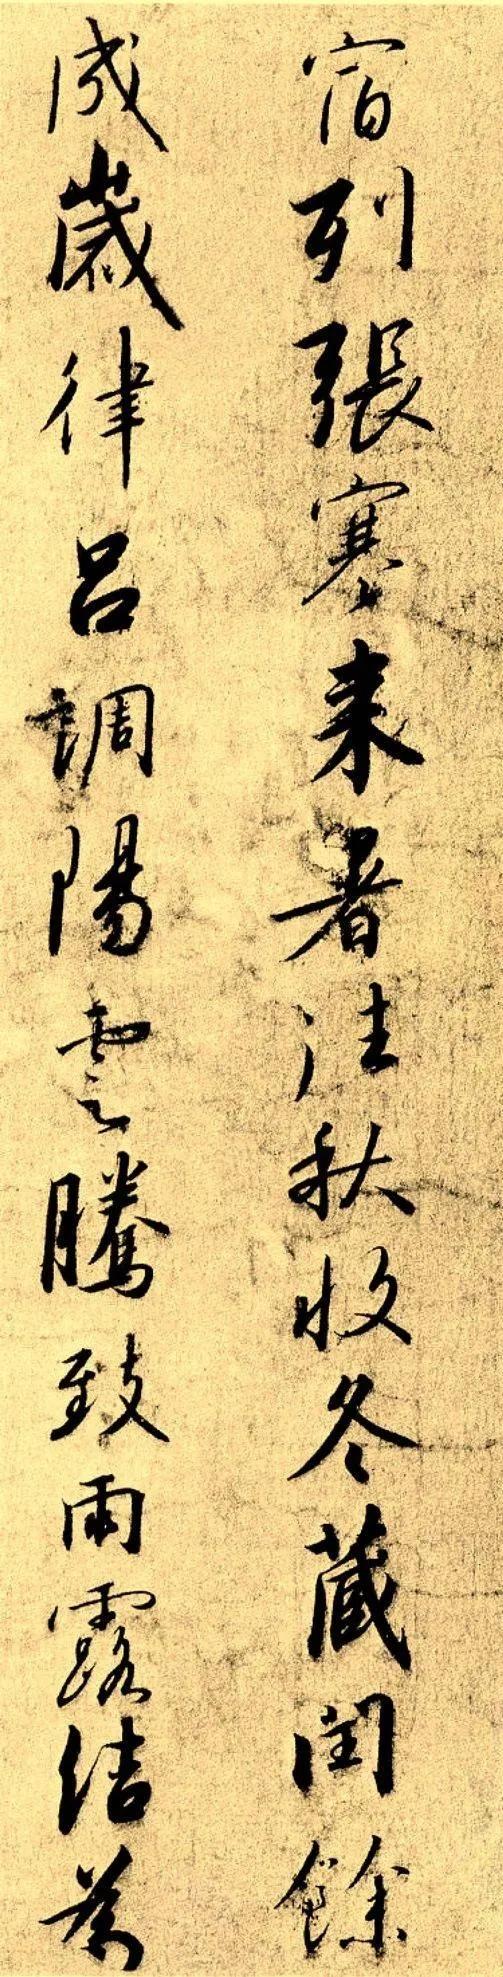 宿列張寒来暑往秋收冬藏閏餘
成歲律呂調陽雲騰致雨露結為